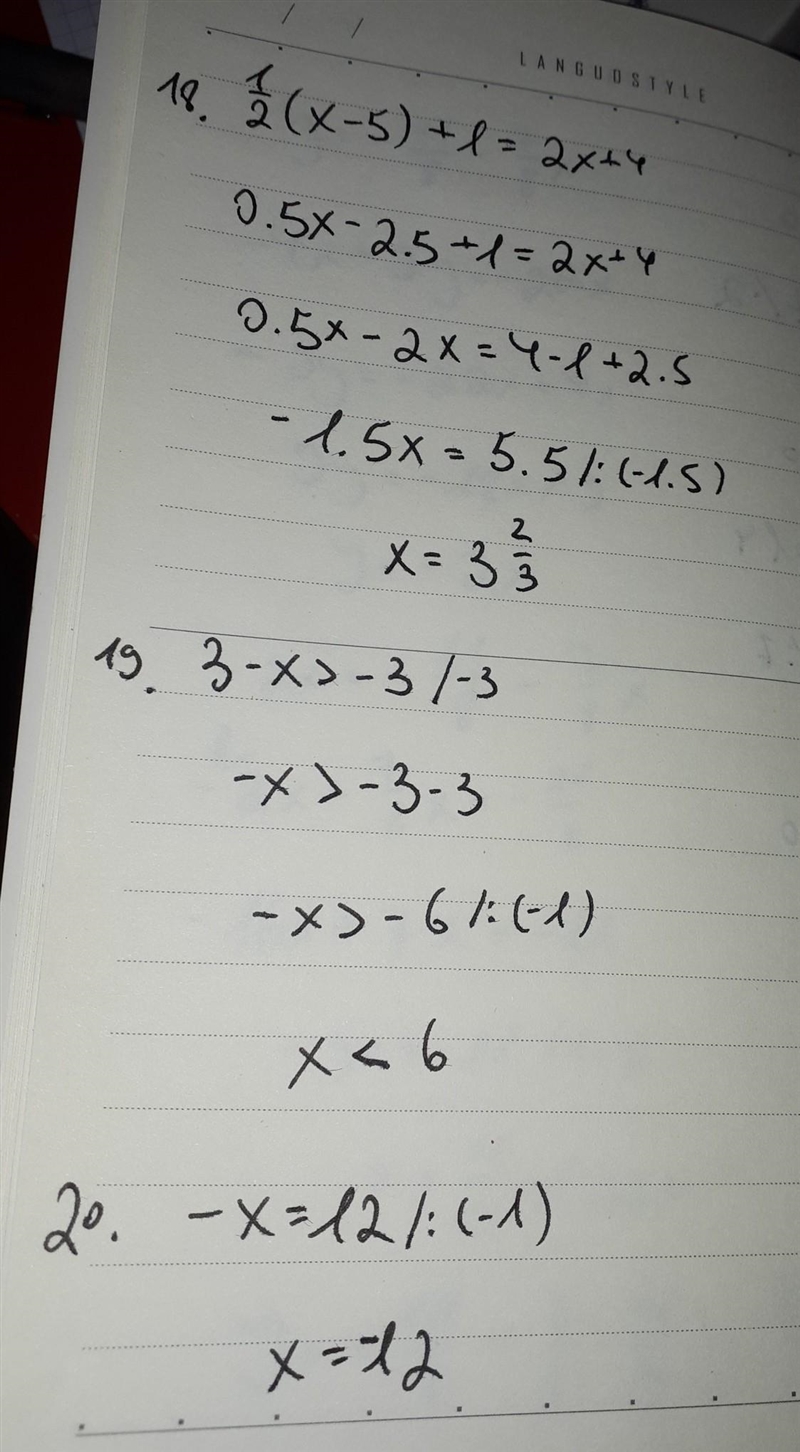 LANGUOSTYLE
18. 1/2 (x-5) +1 = 2x+4
0.5x - 2.5 +1 = 2x+4
0.5x - 2x = 4-1+2.5
-1.5x = 5.5 /:(-1.5)
x = 3 2/3
19. 3-x > -3 /-3
-x > -3-3
-x > -6 /:(-1)
x < 6
20. -x = 12 /:(-1)
x = -12